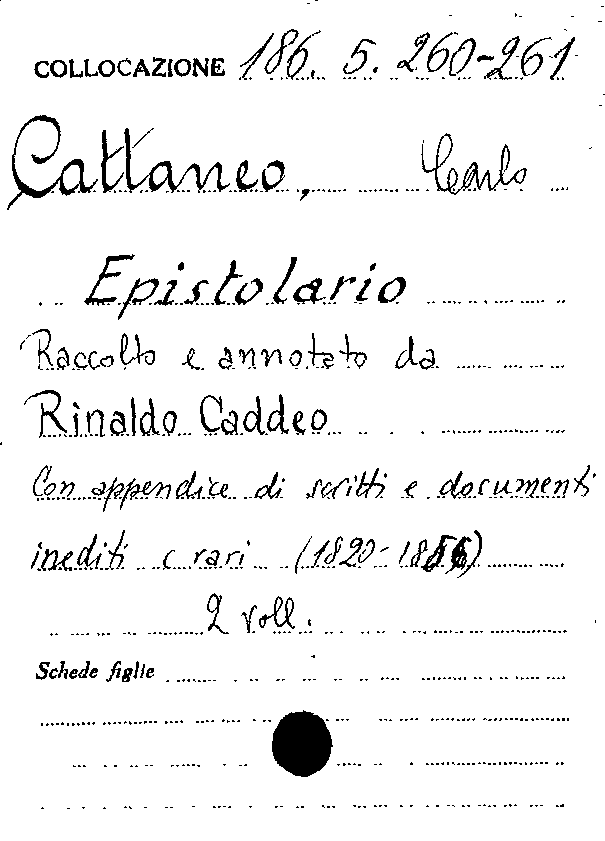 COLLOCAZIONE 186. 5. 260-261
Cattaneo, Carlo
Epistolario
Raccolto e annotato da
Rinaldo Caddeo
Con appendice di scritti e documenti
inediti e rari (1820-1856)
2 voll.
Schede figlie